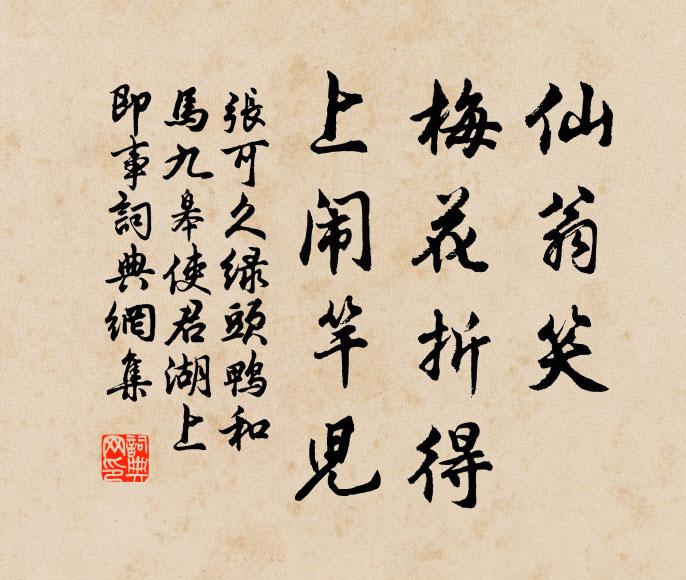 仙翁笑
梅花折得
上闹竿儿
張可久緑頭鴨和
馬九皋使君湖上
即事詞典網集
詞典网印